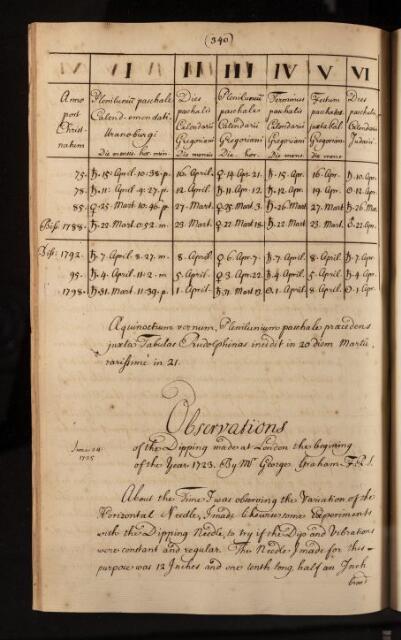 (340)
I II III IV V VI
Anno Plenilunium paschale Dies Plenilunium Terminus Festum Dies
post Calend. emendati paschalis paschale paschalis paschatos paschatis
Christ. Uraniburgi Calendarii Calendarii Calendarii juxta Cal. Calendarii
natum Gregoriani Gregoriani Gregoriani Gregorian Judaici
Die mensis hor. min Die mensis Die. hor. Die mens. Die mens
75. ♄. 15. April 10. 38. p. 16. April. ♀. 14. Apr. 21. ♄. 15. Apr. 16. Apr. ♄. 10. Apr.
78. ♄. 11. April 4. 27. p. 12. April. ♄. 11. Apr. 12. ♄. 12. Apr. 19. Apr. ☉. 12. Apr.
85. ♀. 25. Mart 10. 46. p. 27. Mart. ♀. 25. Mart. 3. ♄. 26. Mart 27. Mart ♄. 26. Mar
Biss. 1788. ♄. 22. Mart 0. 52. m. 23. Mart ♀. 22 Mart 18. ♄. 22 Mart 23. Mart. 22. Apr.
Biss. 1792. ♄. 7. April 8. 27. m. 8. April ♀. 6. Apr. 7. ♄. 7. April 8. April. ♄. 7. Apr.
95. ♄. 4. April. 11. 2. m 5. April. ♀. 3. Apr. 22. ♄. 4. April 5. April ♄. 4. Apr.
1798. ♄. 31. Mart. 11. 39. p. 1. April. ♄. 31. Mart 13. ☉. 1. Apr. 8. April. ☉. 1. Apr.
Aquinoctium vernum, Plenilunium paschale præcedens
juxta Tabulas Rudolphinas incidit in 20 diem Martii
rarissimè in 21.
Observations
June 24 of the Dipping made at London the begining
1725 of the Year 1723. By Mr. George Graham F.R.S.
About the Time I was observing the Variation of the
Horizontal Needle, I made likewise some Experiments
with the Dipping Needle, to try if the Dip and Vibrations
were constant and regular. The Needle I made for this
purpose was 12 Inches and one tenth long, half an Inch
broad